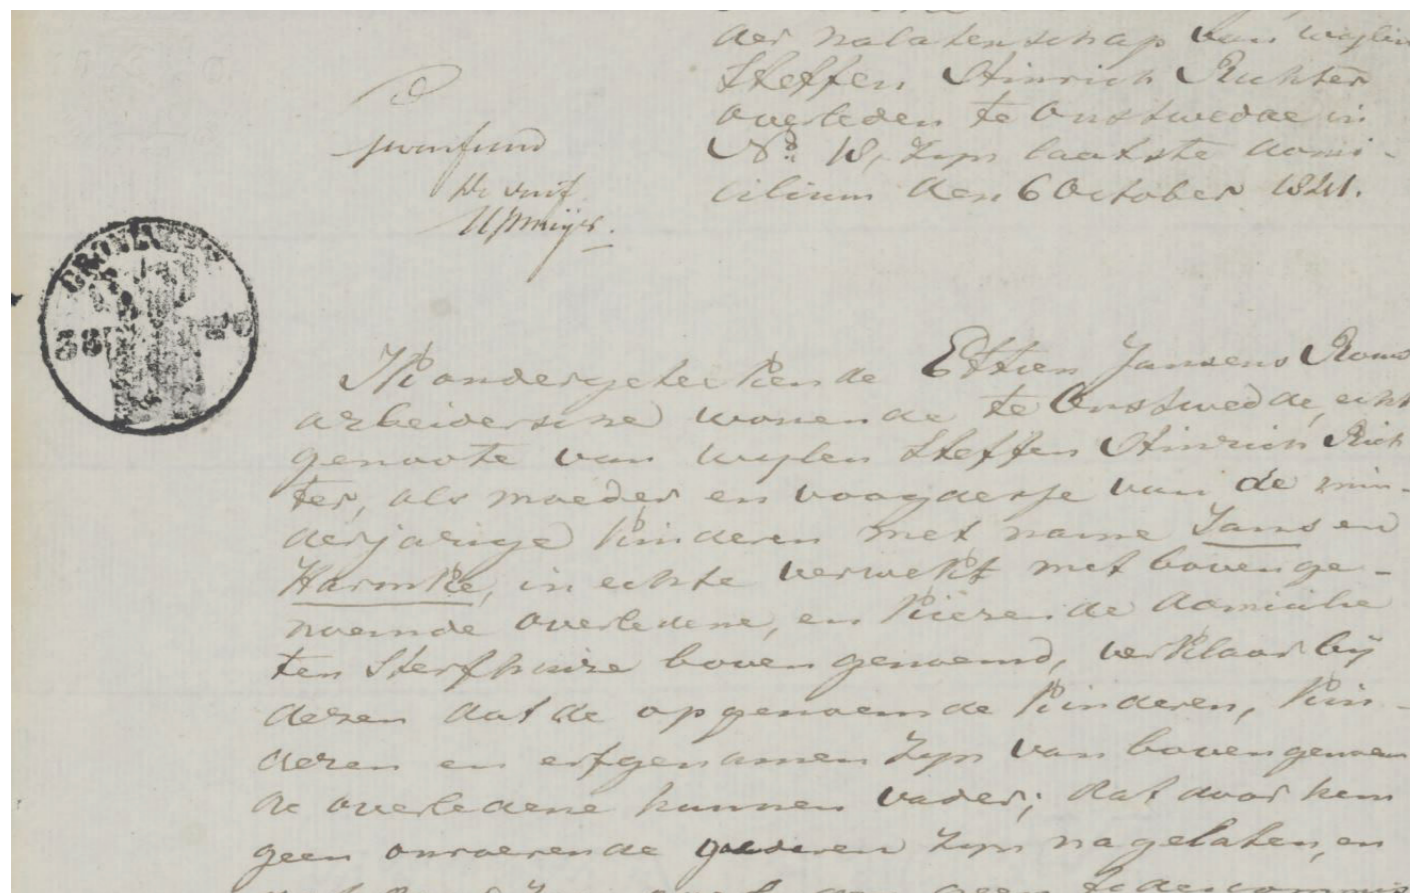 der nalatenschap van wijlen
Steffen Hinrich Richter
overleden te Onstwedde in
No. 18, zijn laatste domi-
cilium den 6 October 1841.
GRONINGEN
38
Ik ondergeteekende Ettien Janssens Roms
arbeidersche wonende te Onstwedde, echt
genoote van wylen Steffen Hinrich Rich
ter, als moeder en voogdesse van de min-
derjarige kinderen met name Jans en
Harmke, in echte verwekt met bovenge-
noemde overledene, en kiezende domicilie
ten sterfhuize bovengenoemd, verklaar bij
dezen dat de opgenoemde kinderen, kin-
deren en erfgenamen zyn van bovengenoem
de overledene hunnen vader; dat door hem
geen onroerende goederen zyn nagelaten, en
geen